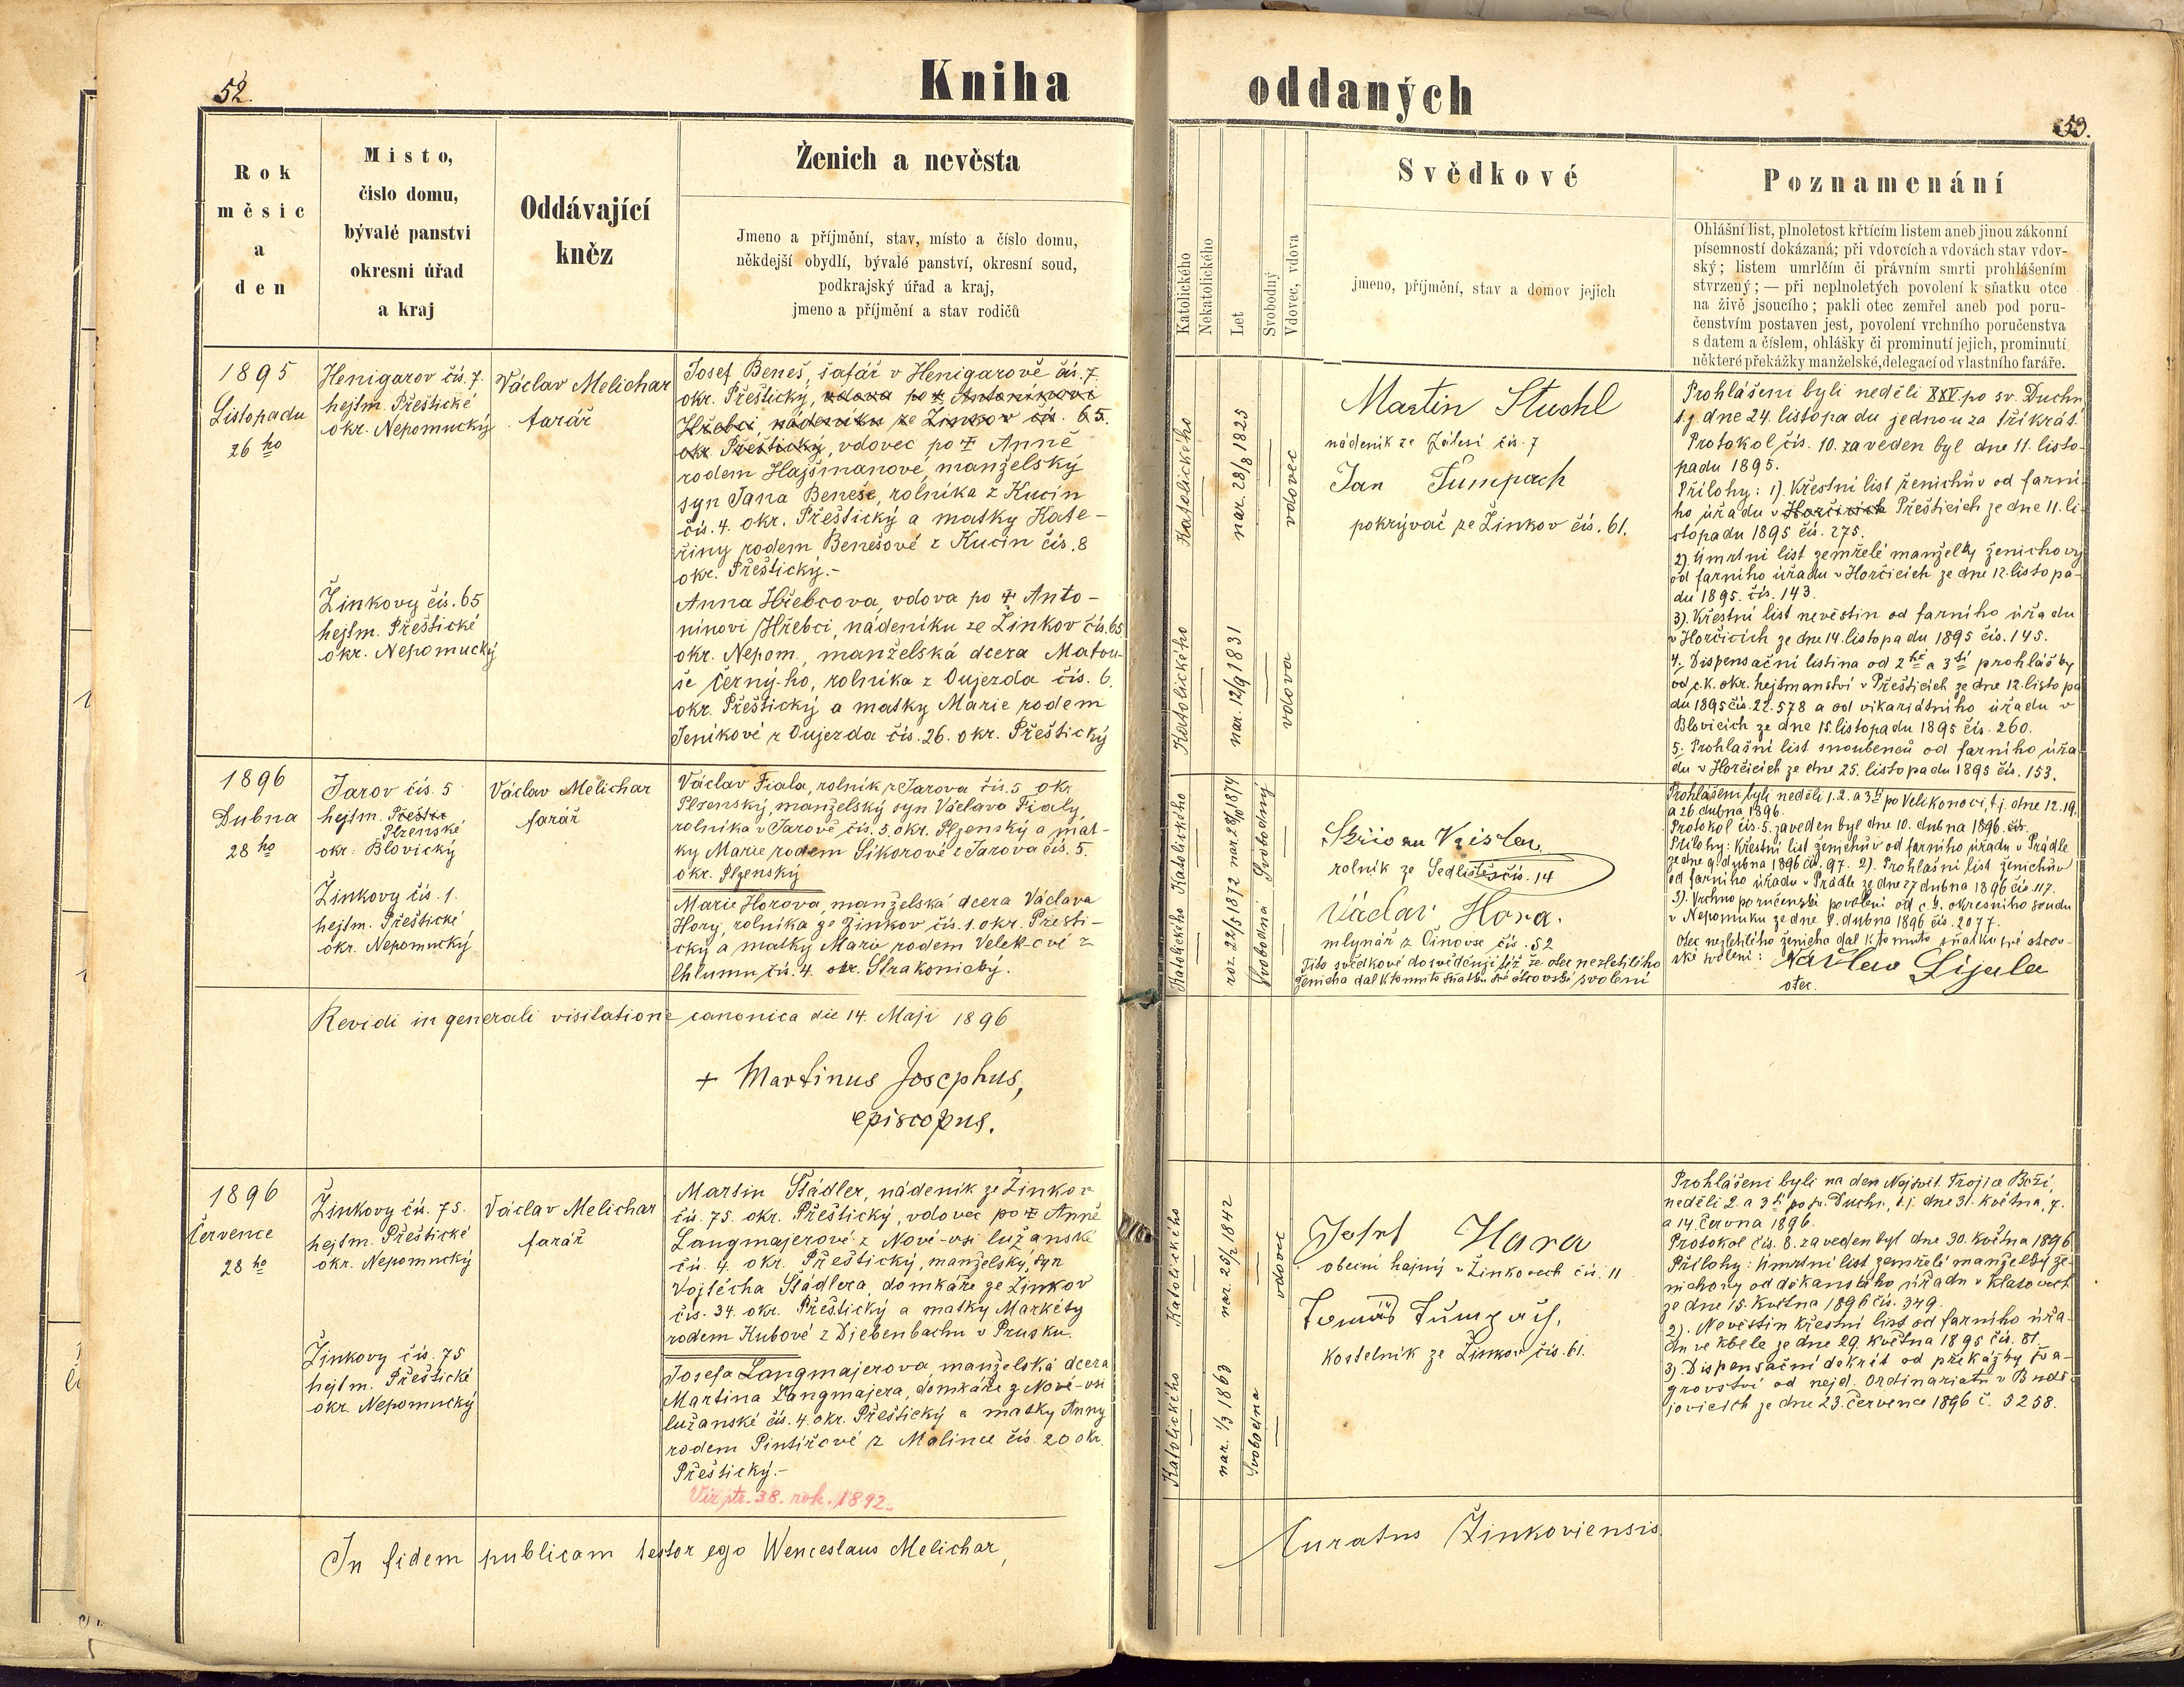 52.
Kniha
Rok
měsíc
a
den
Místo,
číslo domu,
bývalé panství
okresní úřad
a kraj
Oddávající
kněz
Ženich a nevěsta
Jmeno a příjmění, stav, místo a číslo domu,
někdejší obydlí, bývalé panství, okresní soud,
podkrajský úřad a kraj,
jmeno a příjmění a stav rodičů
1895
Listopadu
26 ho
Henigarov čís. 7.
hejtm. Přeštické
okr. Nepomucký
Žinkovy čís. 65
hejtm. Přeštické
okr. Nepomucký
Václav Melichar
farář
Josef Beneš, šafář v Henigarově čís. 7.
okr. Přeštický, vdova po ☦ Antonínovi
Hřebci nádeníku ze Žinkov čís. 65.
okr. Přeštický, vdovec po ☦ Anně
rodem Hajšmanové, manželský
syn Jana Beneše, rolníka z Kucín
čís. 4. okr. Přeštický a matky Kate-
řiny rodem Benešové z Kucín čís. 8
okr. Přeštický.-
Anna Hřebcova, vdova po ☦ Anto-
nínovi Hřebci, nádeníku ze Žinkov čís. 65
okr. Nepom., manželská dcera Matou-
še Černý-ho, rolníka z Oujezda čís. 6.
okr. Přeštický a matky Marie rodem
Jeníkové z Oujezda čís. 26. okr. Přeštický
1896
Dubna
28 ho
Jarov čís. 5
hejtm. Přeštic
Plzenské
okr. Blovický
Žinkovy čís. 1.
hejtm. Přeštické
okr. Nepomucký
Václav Melichar
farář
Václav Fiala, rolník z Jarova čís. 5 okr.
Plzenský, manželský syn Václava Fialy,
rolníka v Jarově čís. 5. okr. Plzenský a mat-
ky Marie rodem Sikorové z Jarova čís. 5.
okr. Plzenský
Marie Horova, manželská dcera Václava
Hory, rolníka ze Žinkov čís. 1. okr. Přešti-
cký a matky Marie rodem Velek-ové z
Chlumu čís. 4. okr. Strakonický.
Revidi in generali visitatione canonica die 14. Maji 1896
+ Martinus Josephus,
episcopus.
1896
Července
28 ho
Žinkovy čís. 75.
hejtm. Přeštické
okr. Nepomucký
Žinkovy čís. 75
hejtm. Přeštické
okr. Nepomucký
Václav Melichar
farář
Martin Štádler, nádeník ze Žinkov
čís. 75. okr. Přeštický, vdovec po ☦ Anně
Langmajerové z Nové-vsi lužanské
čís. 4. okr. Přeštický, manželský syn
Vojtěcha Štádlera, domkáře ze Žinkov
čís. 34. okr. Přeštický a matky Markéty
rodem Kubové z Diebenbachu v Prusku.
Josefa Langmajerova, manželská dcera
Martina Langmajera, domkáře z Nové-vsi
lužanské čís. 4. okr. Přeštický a matky Anny
rodem Pintířové z Malince čís. 20 okr.
Přeštický.-
Viz str. 38. rok. 1892.
In fidem publicam testor ego Wenceslaus Melichar,
oddaných
53.
Katolického
Nekatolického
Let
Svobodný
Vdovec, vdova
Svědkové
jmeno, příjmění, stav a domov jejich
Poznamenání
Ohlášní list, plnoletost křtícím listem aneb jinou zákonní
písemností dokázaná; při vdovcích a vdovách stav vdov-
ský; listem umrlčím či právním smrti prohlášením
stvrzený; — při neplnoletých povolení k sňatku otce
na živě jsoucího; pakli otec zemřel aneb pod poru-
čenstvím postaven jest, povolení vrchního poručenstva
s datem a číslem, ohlášky či prominutí jejich, prominutí
některé překážky manželské, delegací od vlastního faráře.
Katolického
nar. 28/8 1825
vdovec
Katolického
nar. 12/9 1831
vdova
Martin Stuchl
nádeník ze Zálesí čís. 7
Jan Tumpach
pokrývač ze Žinkov čís. 61.
Prohlášeni byli neděli XXV. po sv. Duchu
t.j. dne 24. listopadu jednou za tříkrát.
Protokol čís. 10. zaveden byl dne 11. listo-
padu 1895.
Přílohy: 1). Křestní list ženichův od farní-
ho úřadu v Horčicích Přešticích ze dne 11. li-
stopadu 1895 čís. 275.
2). Úmrtní list zemřelé manželky ženichovy
od farního úřadu v Horčicích ze dne 12. listopa-
du 1895. čís. 143.
3). Křestní list nevěstin od farního úřadu
v Horčicích ze dne 14. listopadu 1895 čís. 145.
4. Dispensační listina od 2hé a 3tí prohlášby
od c.k. okr. hejtmanství v Přešticích ze dne 12. listopa
du 1895 čís. 22.578 a od vikariátního úřadu v
Blovicích ze dne 15. listopadu 1895 čís. 260.
5. Prohlašní list snoubenců od farního úřa
du v Horčicích ze dne 25. listopadu 1895 čís. 153.
Katolického
Svobodný
Katolického
roz. 22/5 1872
Svobodná
rolník ze Sedliště čís. 14
Václav Hora.
mlynář z Činovse čís. 52
Tito svědkové dosvědčují též že otec nezletilého
ženicha dal k tomuto sňatku své otcovské svolení
Prohlášeni byli neděli 1. 2. a 3tí po Velikonoci, t.j. dne 12. 19.
a 26. dubna 1896.
Protokol čís. 5. zaveden byl dne 10. dubna 1896. čís.
Přílohy: Křestní list ženichův od farního úřadu v Prádle
ze dne 9. dubna 1896 čís. 97. 2). Prohlašní list ženichův
od farního úřadu v Prádle ze dne 27 dubna 1896 čís 117.
3). Vrchno poručenské povolení od c.k. okresního soudu
v Nepomuku ze dne 9. dubna 1896 čís. 2077.
Otec nezletilého ženicha dal k tomuto sňatku své otcov-
ské svolení:
otec.
Katolického
nar. 25/2 1842
vdovec
Katolického
nar. 1/3 1863
Svobodna
Josef Hara
obecní hajný v Žinkovech čís. 11
Tomáš Tumpach,
kostelník ze Žinkov čís. 61.
Prohlášeni byli na den Nejsvět. Trojice Boží,
neděli 2. a 3tí po sv. Duchu, t.j. dne 31. května, 7.
a 14. června 1896.
Protokol čís. 8. zaveden byl dne 30. května 1896
Přílohy: Úmrtní list zemřelé manželky že-
nichovy od děkanského úřadu v Klatovech
ze dne 15. května 1896 čís. 349.
2). Nevěstin křestní list od farního úřa-
du ve Kbele ze dne 29. května 1895 čís. 81.
3). Dispensační dekrét od překážby šva-
grovství od nejd. Ordinariatu v Budě-
jovicích ze dne 23. července 1896 č. 5258.
Curatus Žinkoviensis.